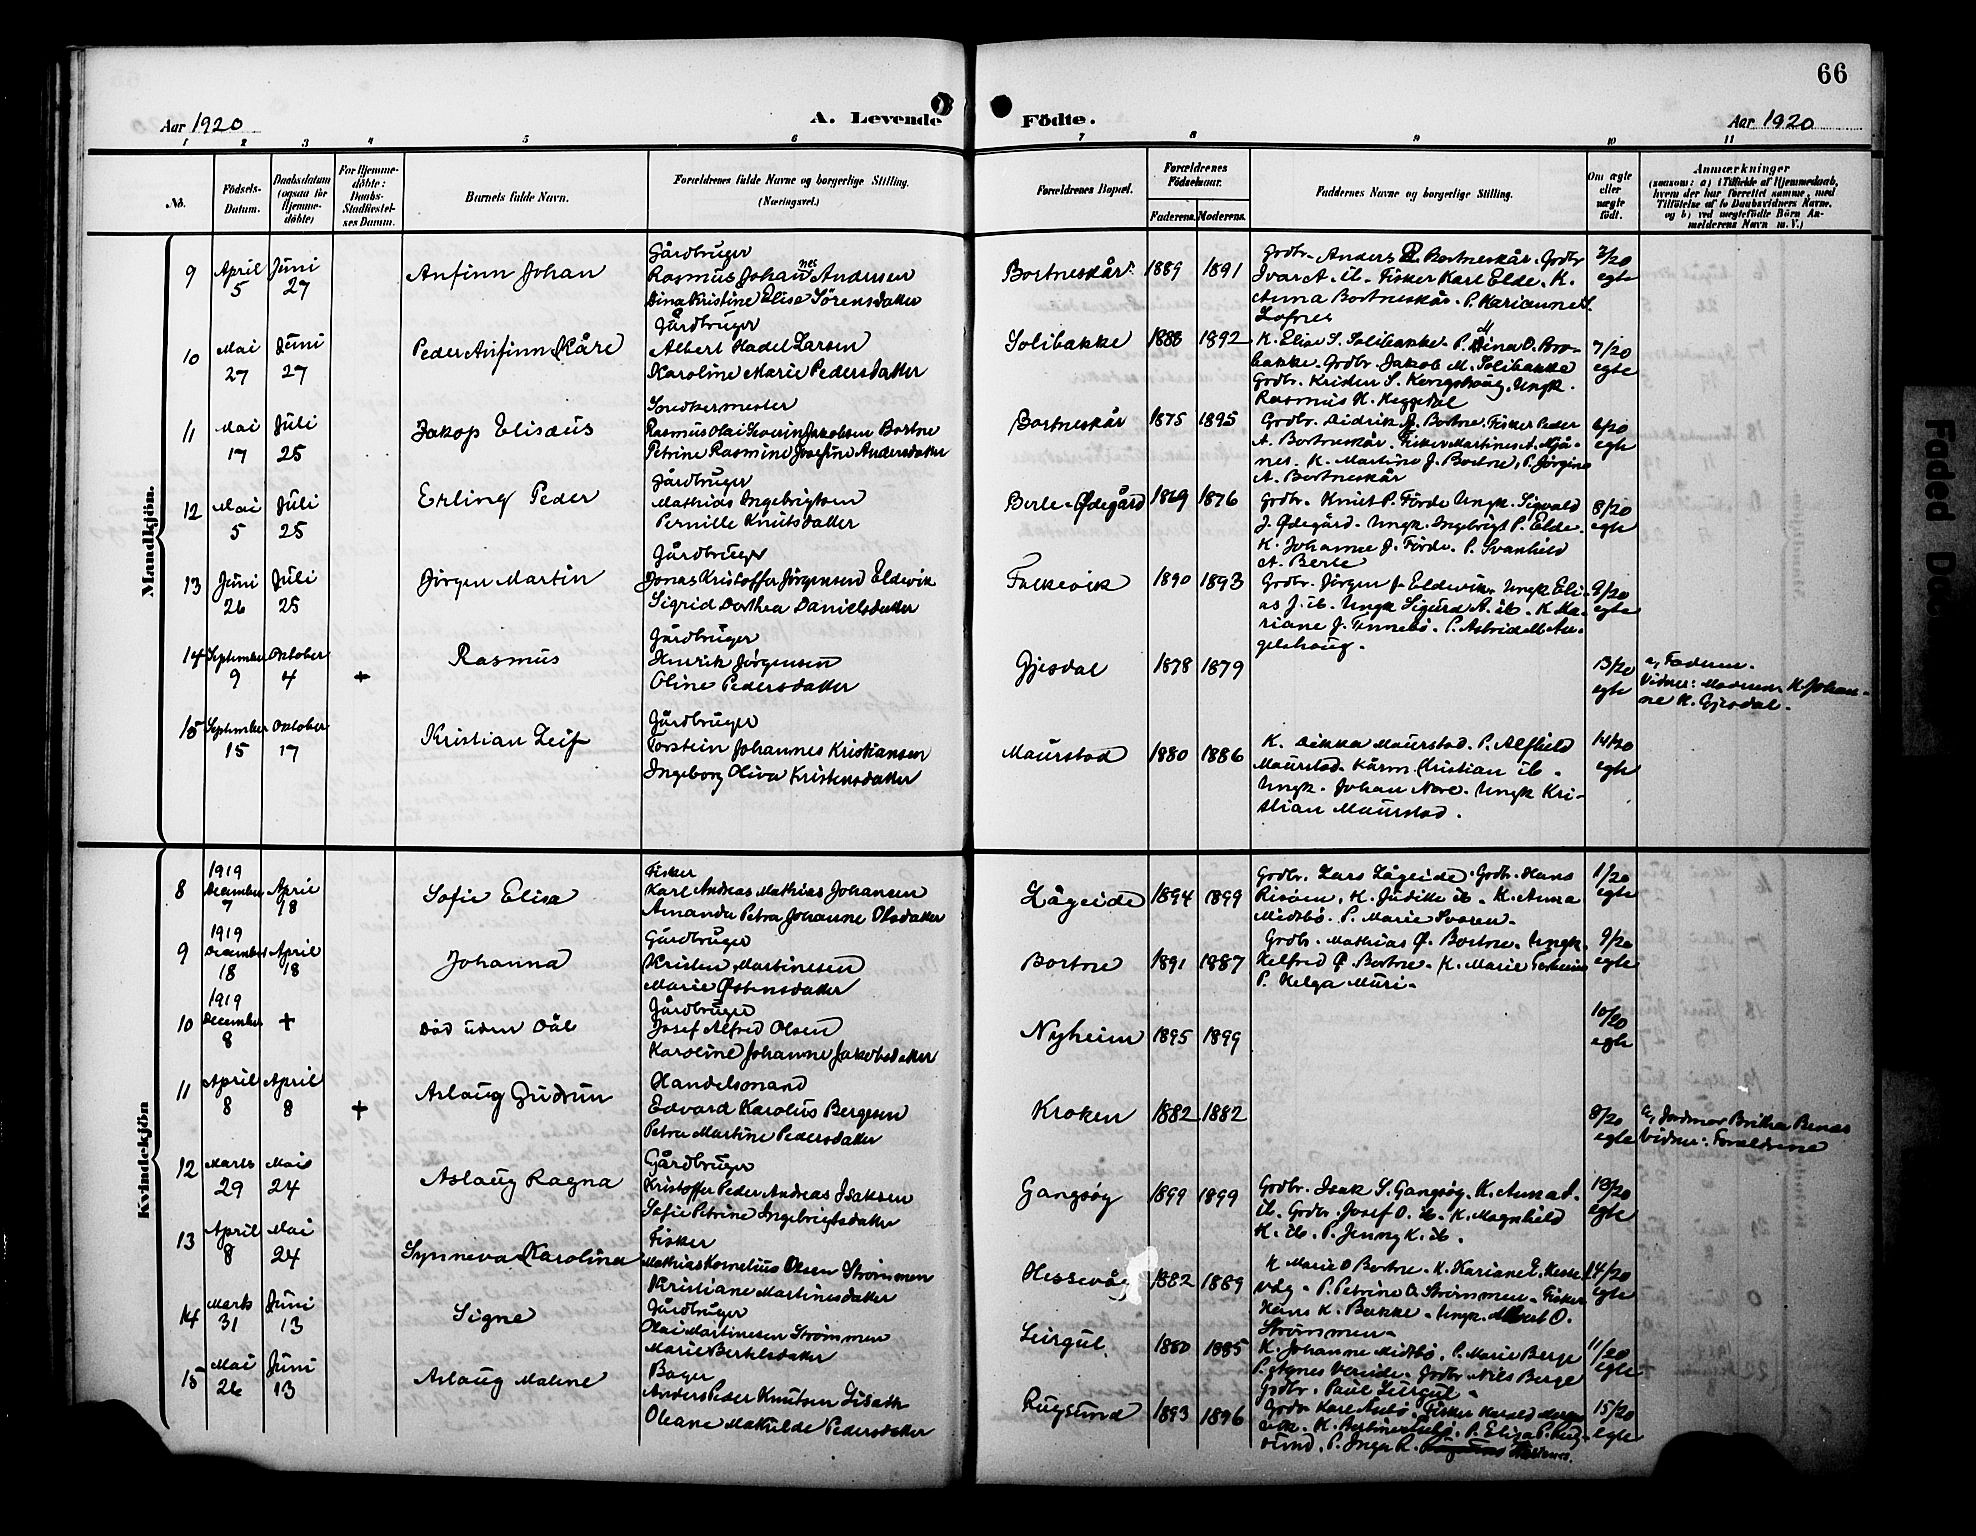 66
Aar 1920
A. Levende Födte.
Aar 1920
1 2 3 4 5 6 7 8 9 10 11
No.
Födsels-Datum.
Daabsdatum (ogsaa for Hjemme-döbte)
For Hjemme-döbte: Daabs-Stadfæstel-ses Datum.
Barnets fulde Navn.
Forældrenes fulde Navne og borgerlige Stilling. (Næringsvei.)
Forældrenes Bopæl.
Forældrenes Födselsaar.
Faderens. Moderens.
Faddernes Navne og borgerlige Stilling.
Om ægte eller uægte födt.
Anmærkninger
(saasom: a) i Tilfælde af Hjemmedaab, hvem der har forrettet samme, med Tilföielse af to Daabsvidners Navne, og b) ved uegtefödte Börn Anmelderens Navn m. V.)
Mandkjön.
9 April 5 Juni 27 Anfinn Johan
Gårdbruger
Rasmus Johannes Andersen
Dina Kristine Elise Sörensdatter
Bortneskår 1889 1891
Grdbr. Anders R. Bortneskår. Grdbr
Ivar A. ib. Fisker Karl Elde. K.
Anna Bortneskår. P. Karianne
Lofnes
3/20 egte
10 Mai 27 Juni 27 Peder Anfinn Kåre
Gårdbruger
Albert Hadel Larsen
Karoline Marie Pedersdatter
Solibakke 1888 1892
K. Elise S. Solibakke. P. Dina O. Bro-
bakke. Grdbr. Jakob M. Solibakke
Grdbr. Kristen S. Kongshaug. Ungk.
Rasmus H. Heggedal
7/20 egte
11 Mai 17 Juli 25 Jakop Elisæus
Snedkermester
Rasmus Olai Severin Jakobsen Bortne
Petrine Rasmine Josefine Andersdatter
Bortneskår 1875 1895
Grdbr. Didrik J. Bortne. Fisker Peder
A. Bortneskår. Fisker Martines A. Myå-
nes. K. Martine J. Bortne, P. Jörgine
A. Bortneskår
6/20 egte
12 Mai 5 Juli 25 Erling Peder
Gårdbruger
Mathias Ingebrigtsen
Pernille Knutsdatter
Berle-Ødegård 1869 1876
Grdbr. Knut P. Förde Ungk. Sigvald
J. Ødegård. Ungk. Ingebrigt P. Elde.
K. Johanne J. Förde. P. Svanhild
A. Berle
8/20 egte
13 Juni 26 Juli 25 Jörgen Martin
Gårdbruger
Jonas Kristoffer Jörgensen Eldevik
Sigrid Dorthea Danielsdatter
Falkevik 1890 1893
Grdbr. Jörgen J. Eldevik. Ungk Eli-
as J. ib. Ungk Sigurd A. ib. K. Ma-
riane J. Tennebö. P. Astrid M. An-
gelshaug.
9/20 egte
14 September 9 Oktober 4 + Rasmus
Gårdbruger
Henrik Jörgensen
Oline Pedersdatter
Gjesdal 1878 1879
13/20 egte
a, Faderen.
Vidner: Moderen K. Johan-
ne K. Gjesdal.
15 September 15 Oktober 17 Kristian Leif
Gårdbruger
Torstein Johannes Kristiansen
Ingeborg Oliva Kristensdatter
Maurstad 1880 1886
K. Dikka Maurstad. P. Alfhild
Maurstad. Kårm. Kristian ib.
Ungk. Johan Nore. Ungk Kri-
stian Maurstad.
14/20 egte
Kvindekjön
8 1919 December 7 April 18 Sofie Elise
Fisker
Karl Andreas Mathias Johansen
Amanda Petra Johanne Olsdatter
Lågeide 1894 1899
Grdbr. Lars Lågeide. Grdbr. Hans
Risöen. K. Juditte ib. K. Anna
Midtbö. P. Marie Svoren.
1/20 egte
9 1919 December 18 April 18 Johanna
Gårdbruger
Kristen Martinesen
Marie Østensdatter
Bortne 1891 1887
Grdbr. Mathias Ø. Bortne. Ungk.
Helfred Ø. Bortne. K. Marie
P. Helga Muri.
9/20 egte
10 1919 December 8 + Död uden Dåb
Gårdbruger
Josef Alfred Olsen
Karoline Johanne Jakobsdatter
Nyheim 1895 1899
10/20 egte
11 April 8 April 8 + Aslaug Gudrun
Handelsmand
Edvard Karolus Bergesen
Petra Martine Pedersdatter
Kroken 1882 1882
8/20 egte
a, Jordmor Britha Benas
Vidner: Forældrene
12 Marts 29 Mai 24 Aslaug Ragna
Gårdbruger
Kristoffer Peder Andreas Isaksen
Sofie Petrine Ingebrigtsdatter
Gangsöy 1899 1899
Grdbr. Isak S. Gangsöy. K. Anna S.
ib. Grdbr. Josef O. ib. K. Magnhild
K. ib. P. Jenny K. ib.
13/20 egte
13 April 8 Mai 24 Synneva Karolina
Fisker
Mathias Kornelius Olsen Strömmen
Kristiane Martinesdatter
Hessevåg 1882 1889
K Marie O Bortne. K. Kariane E. Hesse-
våg. P. Petrine O. Strömmen. Fisker
Hans K. Bakke. Ungk. Albert O.
Strömmen.
14/20 egte
14 Marts 31 Juni 13 Signe
Gårdbruger
Olai Martinesen Strömmen
Marie Bertelsdatter
Leirgul 1880 1885
K. Johanne Midtbö. P. Marie Berge
P. Agnes Vereide. Grdbr Nils Berge
Grdbr. Paul Leirgul.
11/20 egte
15 Mai 26 Juni 13 Aslaug Malene
Bager
Anders Peder Knutsen Lisæth
Oleane Mathilde Pedersdatter
Rugsund 1893 1896
Grdbr Karl Ausbö. Fisker Harald
P. Elise P. Rug-
sund. P. Inga R.
15/20 egte
Faded